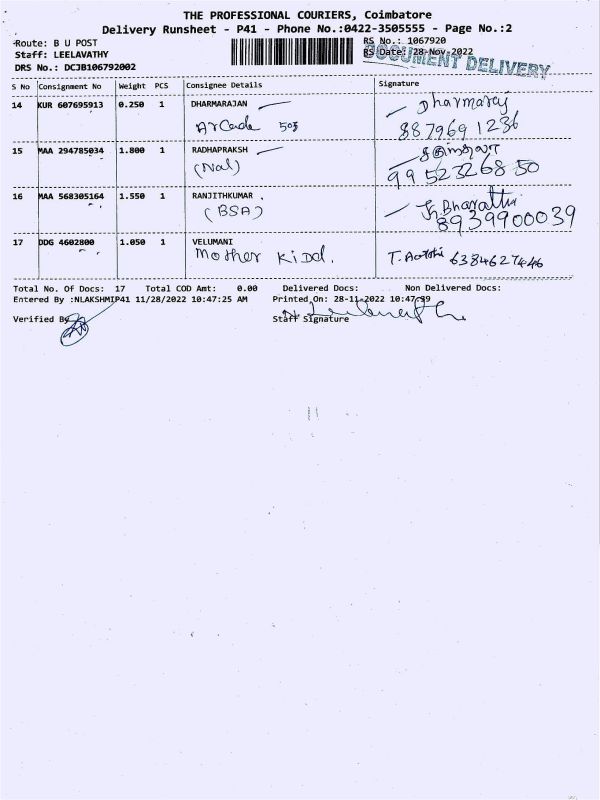 THE PROFESSIONAL COURIERS, Coimbatore
Delivery Runsheet - P41 - Phone No.:0422-3505555 - Page No.:2
Route: B U POST
RS No.: 1067920
Staff: LEELAVATHY
RS Date: 28-Nov-2022
DOCUMENT DELIVERY
DRS No.: DCJB106792002
S No Consignment No Weight PCS Consignee Details Signature
14 KUR 607695913 0.250 1 DHARMARAJAN Dharmaraj
Arcade 503 8879691236
15 MAA 294785034 1.800 1 RADHAPRAKSH
(Nal) 9952326850
16 MAA 568305164 1.550 1 RANJITHKUMAR . Bharathi
(BSA) 8939900039
17 DDG 4602800 1.050 1 VELUMANI
Mother Kidd. 6384627446
Total No. Of Docs: 17 Total COD Amt: 0.00 Delivered Docs: Non Delivered Docs:
Entered By :NLAKSHMIP41 11/28/2022 10:47:25 AM Printed On: 28-11-2022 10:47:39
Verified By
Staff Signature